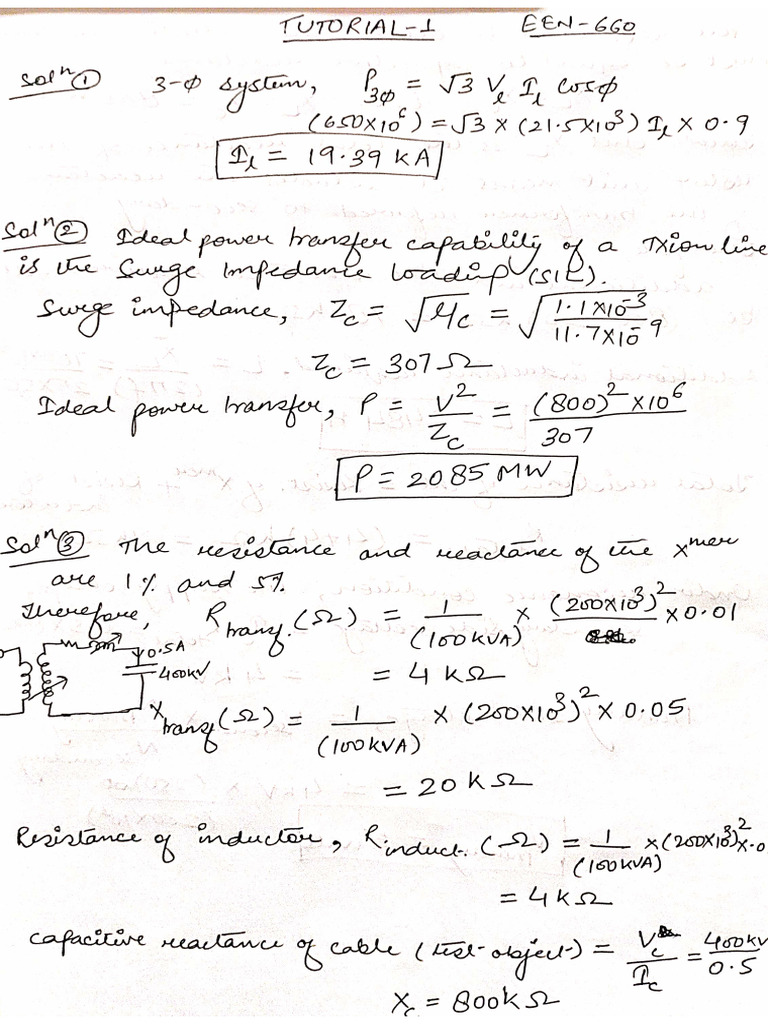 TUTORIAL-1 EEN-660
Solⁿ ① 3-Φ system, P₃Φ = √3 Vₗ Iₗ cosΦ
(650×10⁶) = √3 × (21.5×10³) Iₗ × 0.9
Iₗ = 19.39 KA
Solⁿ ② Ideal power transfer capability of a Txion line
is the Surge Impedance loading (SIL).
Surge impedance, Z_c = √(L/C) = √(1.1×10⁻³ / 11.7×10⁻⁹)
Z_c = 307 Ω
Ideal power transfer, P = V²/Z_c = (800)²×10⁶ / 307
P = 2085 MW
Solⁿ ③ The resistance and reactance of the xᵐᵉʳ
are 1% and 5%
Therefore, R_transf. (Ω) = 1/(100KVA) × (200×10³)² × 0.01
= 4 KΩ
0.5A
400KV
X_transf (Ω) = 1/(100KVA) × (200×10³)² × 0.05
= 20 KΩ
Resistance of inductor, R_induct. (Ω) = 1/(100KVA) × (200×10³)² × .0
= 4 KΩ
Capacitive reactance of cable (test-object) = V_c/I_c = 400KV/0.5
X_c = 800K Ω